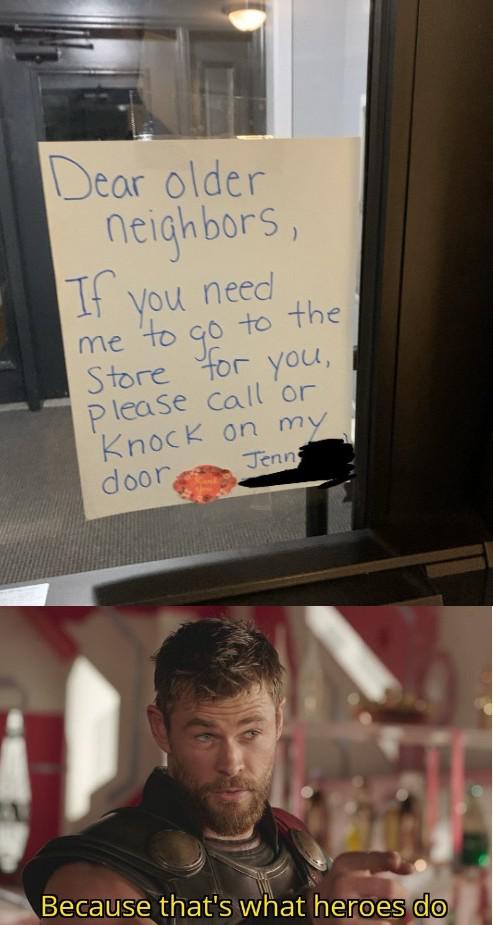 Dear older
neighbors,
If you need
me to go to the
store for you,
please call or
knock on my
door
Jenn
Because that's what heroes do